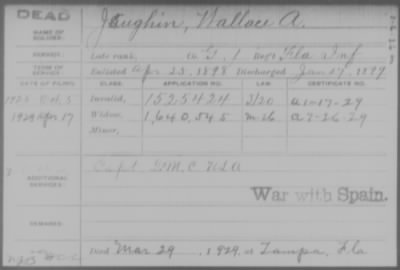 DEAD
NAME OF SOLDIER: Joughin, Wallace A.
SERVICE: Late rank, Co. G, 1 Reg't Fla Inf
TERM OF SERVICE: Enlisted Apr 25, 1898 Discharged Jan 27, 1899
DATE OF FILING. CLASS. APPLICATION NO. LAW. CERTIFICATE NO.
Oct 5 Invalid, 1525424 A 1-17-29
1929 Apr 17 Widow, 1,640,545 M-26 A 7-26-29
Minor,
ADDITIONAL SERVICES: Capt. QMC USA
War with Spain.
REMARKS:
Died Mar 29, 1929, at Tampa, Fla